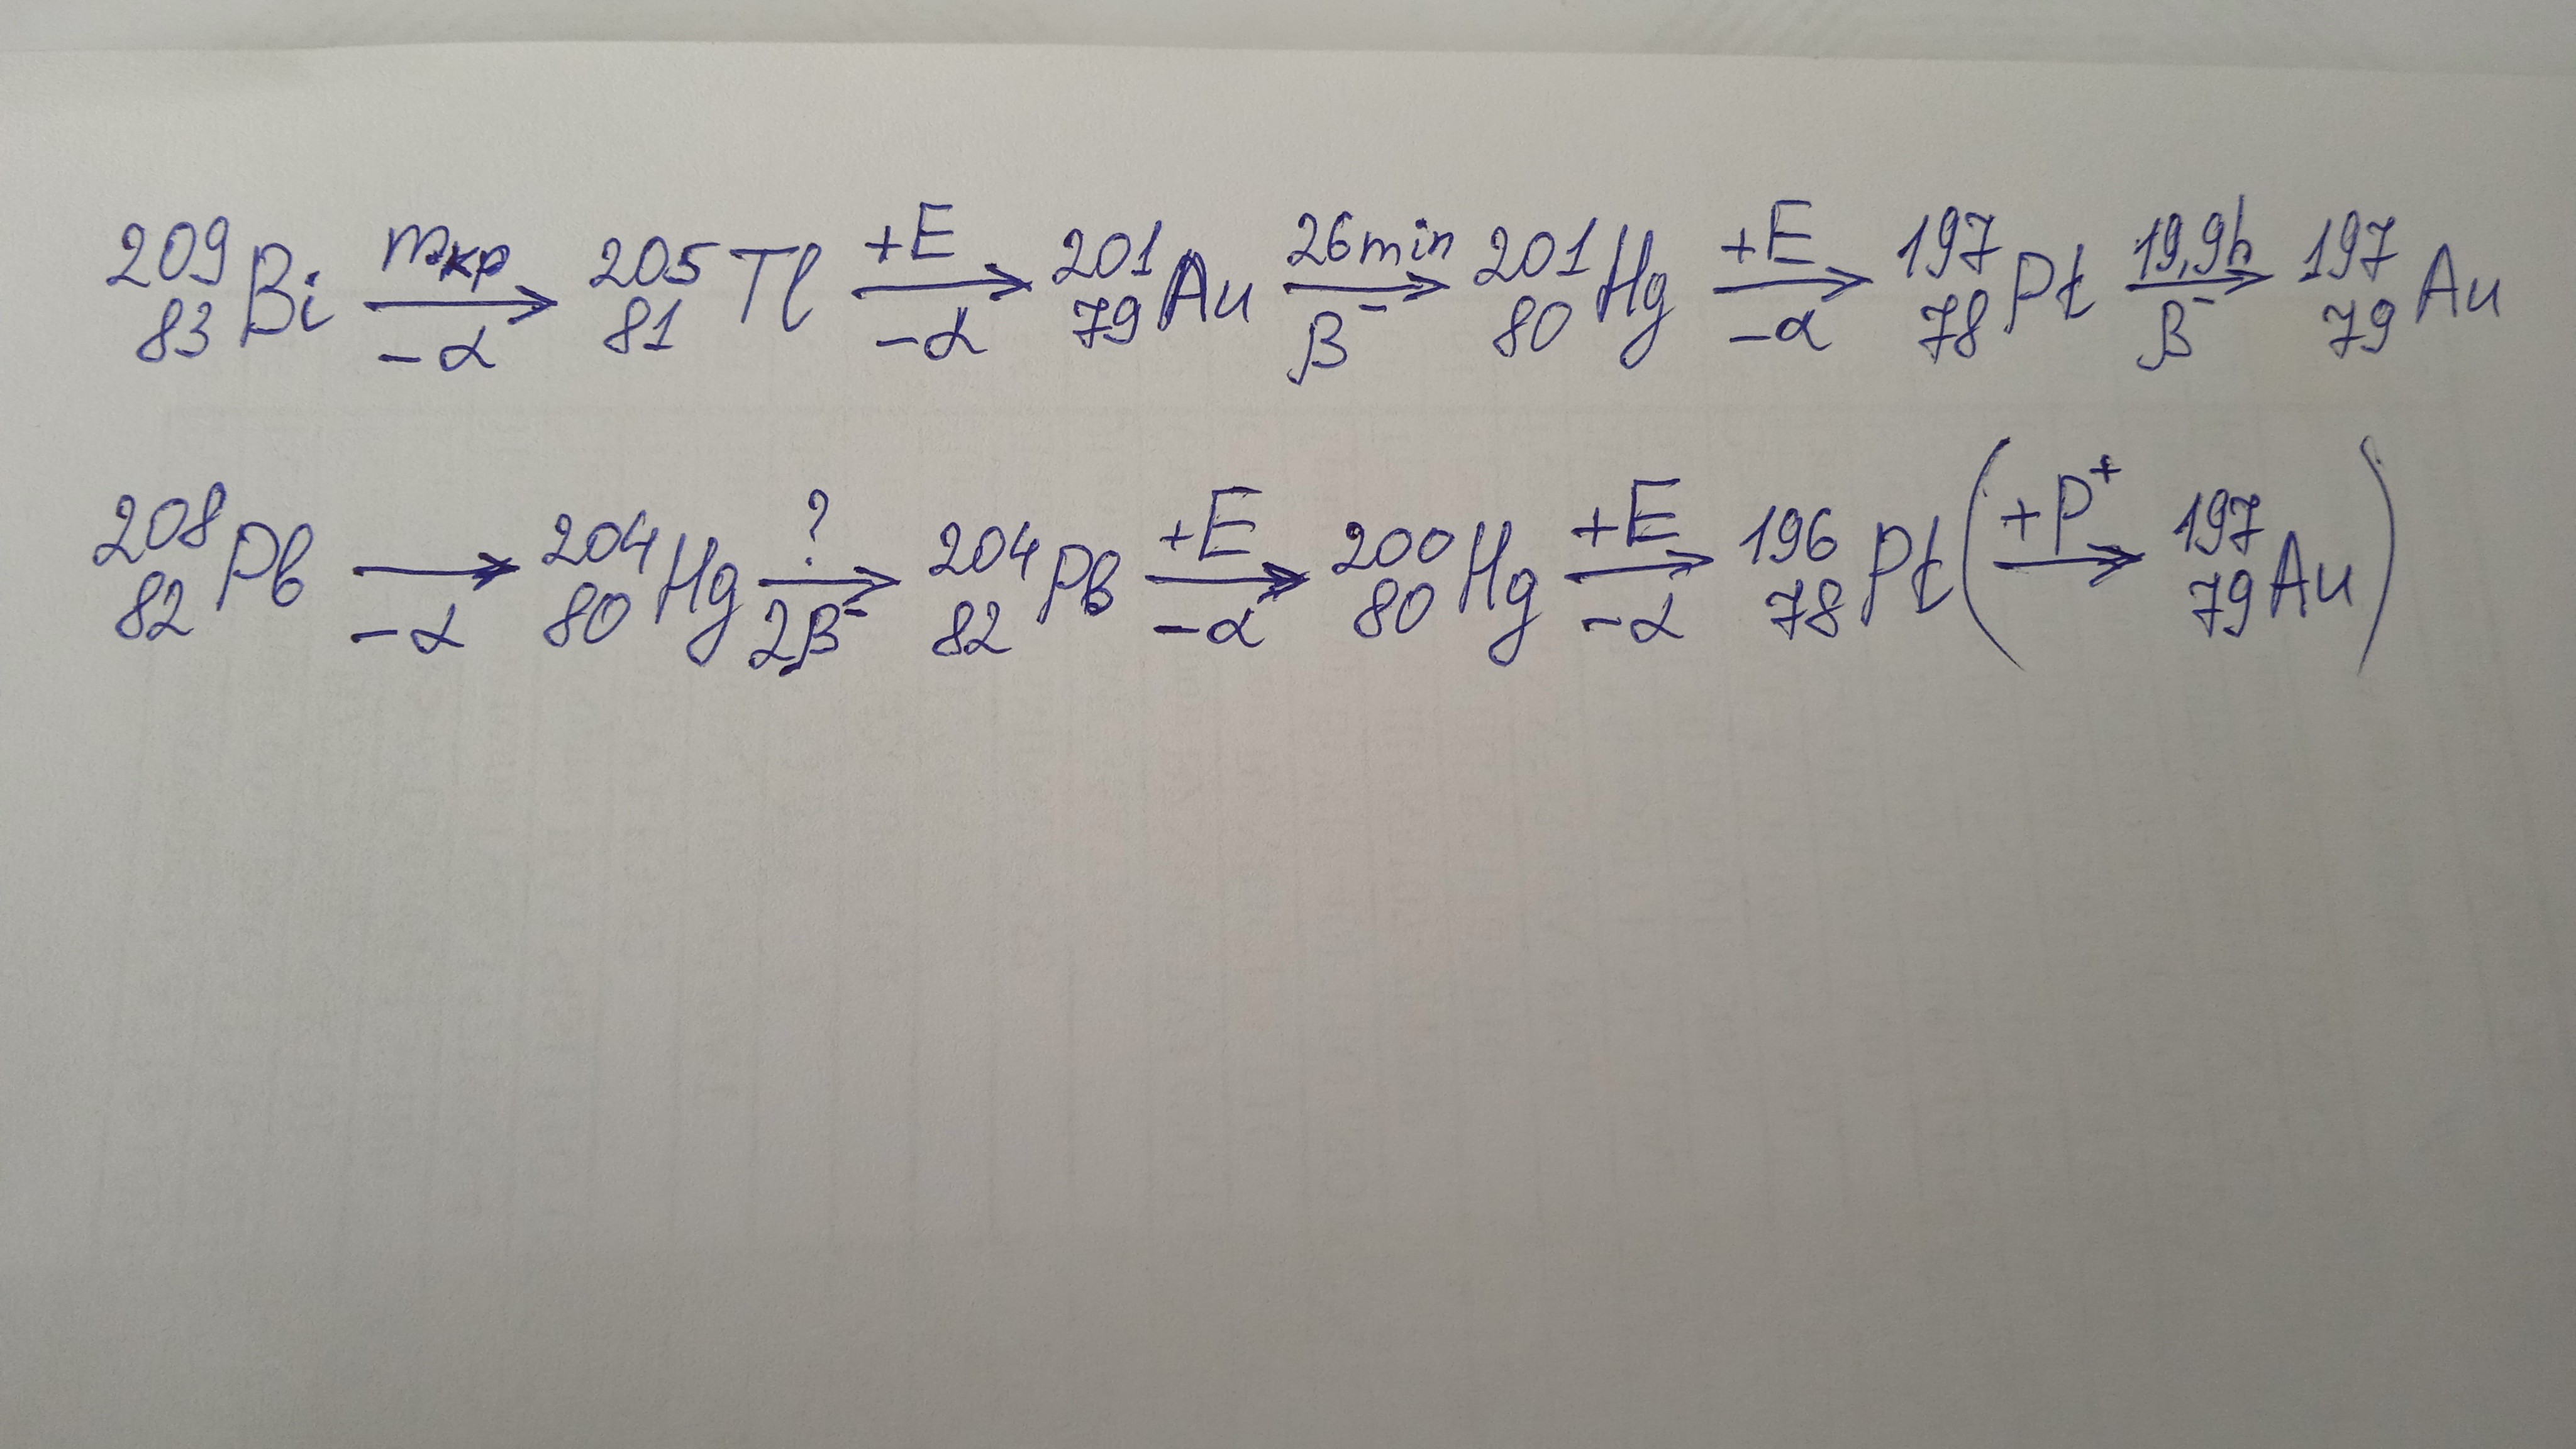 ²⁰⁹₈₃Bi —mкр/−α→ ²⁰⁵₈₁Tl —+E/−α→ ²⁰¹₇₉Au —26min/β⁻→ ²⁰¹₈₀Hg —+E/−α→ ¹⁹⁷₇₈Pt —19,9h/β⁻→ ¹⁹⁷₇₉Au
²⁰⁸₈₂Pb —/−α→ ²⁰⁴₈₀Hg —?/2β⁻→ ²⁰⁴₈₂Pb —+E/−α→ ²⁰⁰₈₀Hg —+E/−α→ ¹⁹⁶₇₈Pt (—+P⁺→ ¹⁹⁷₇₉Au)